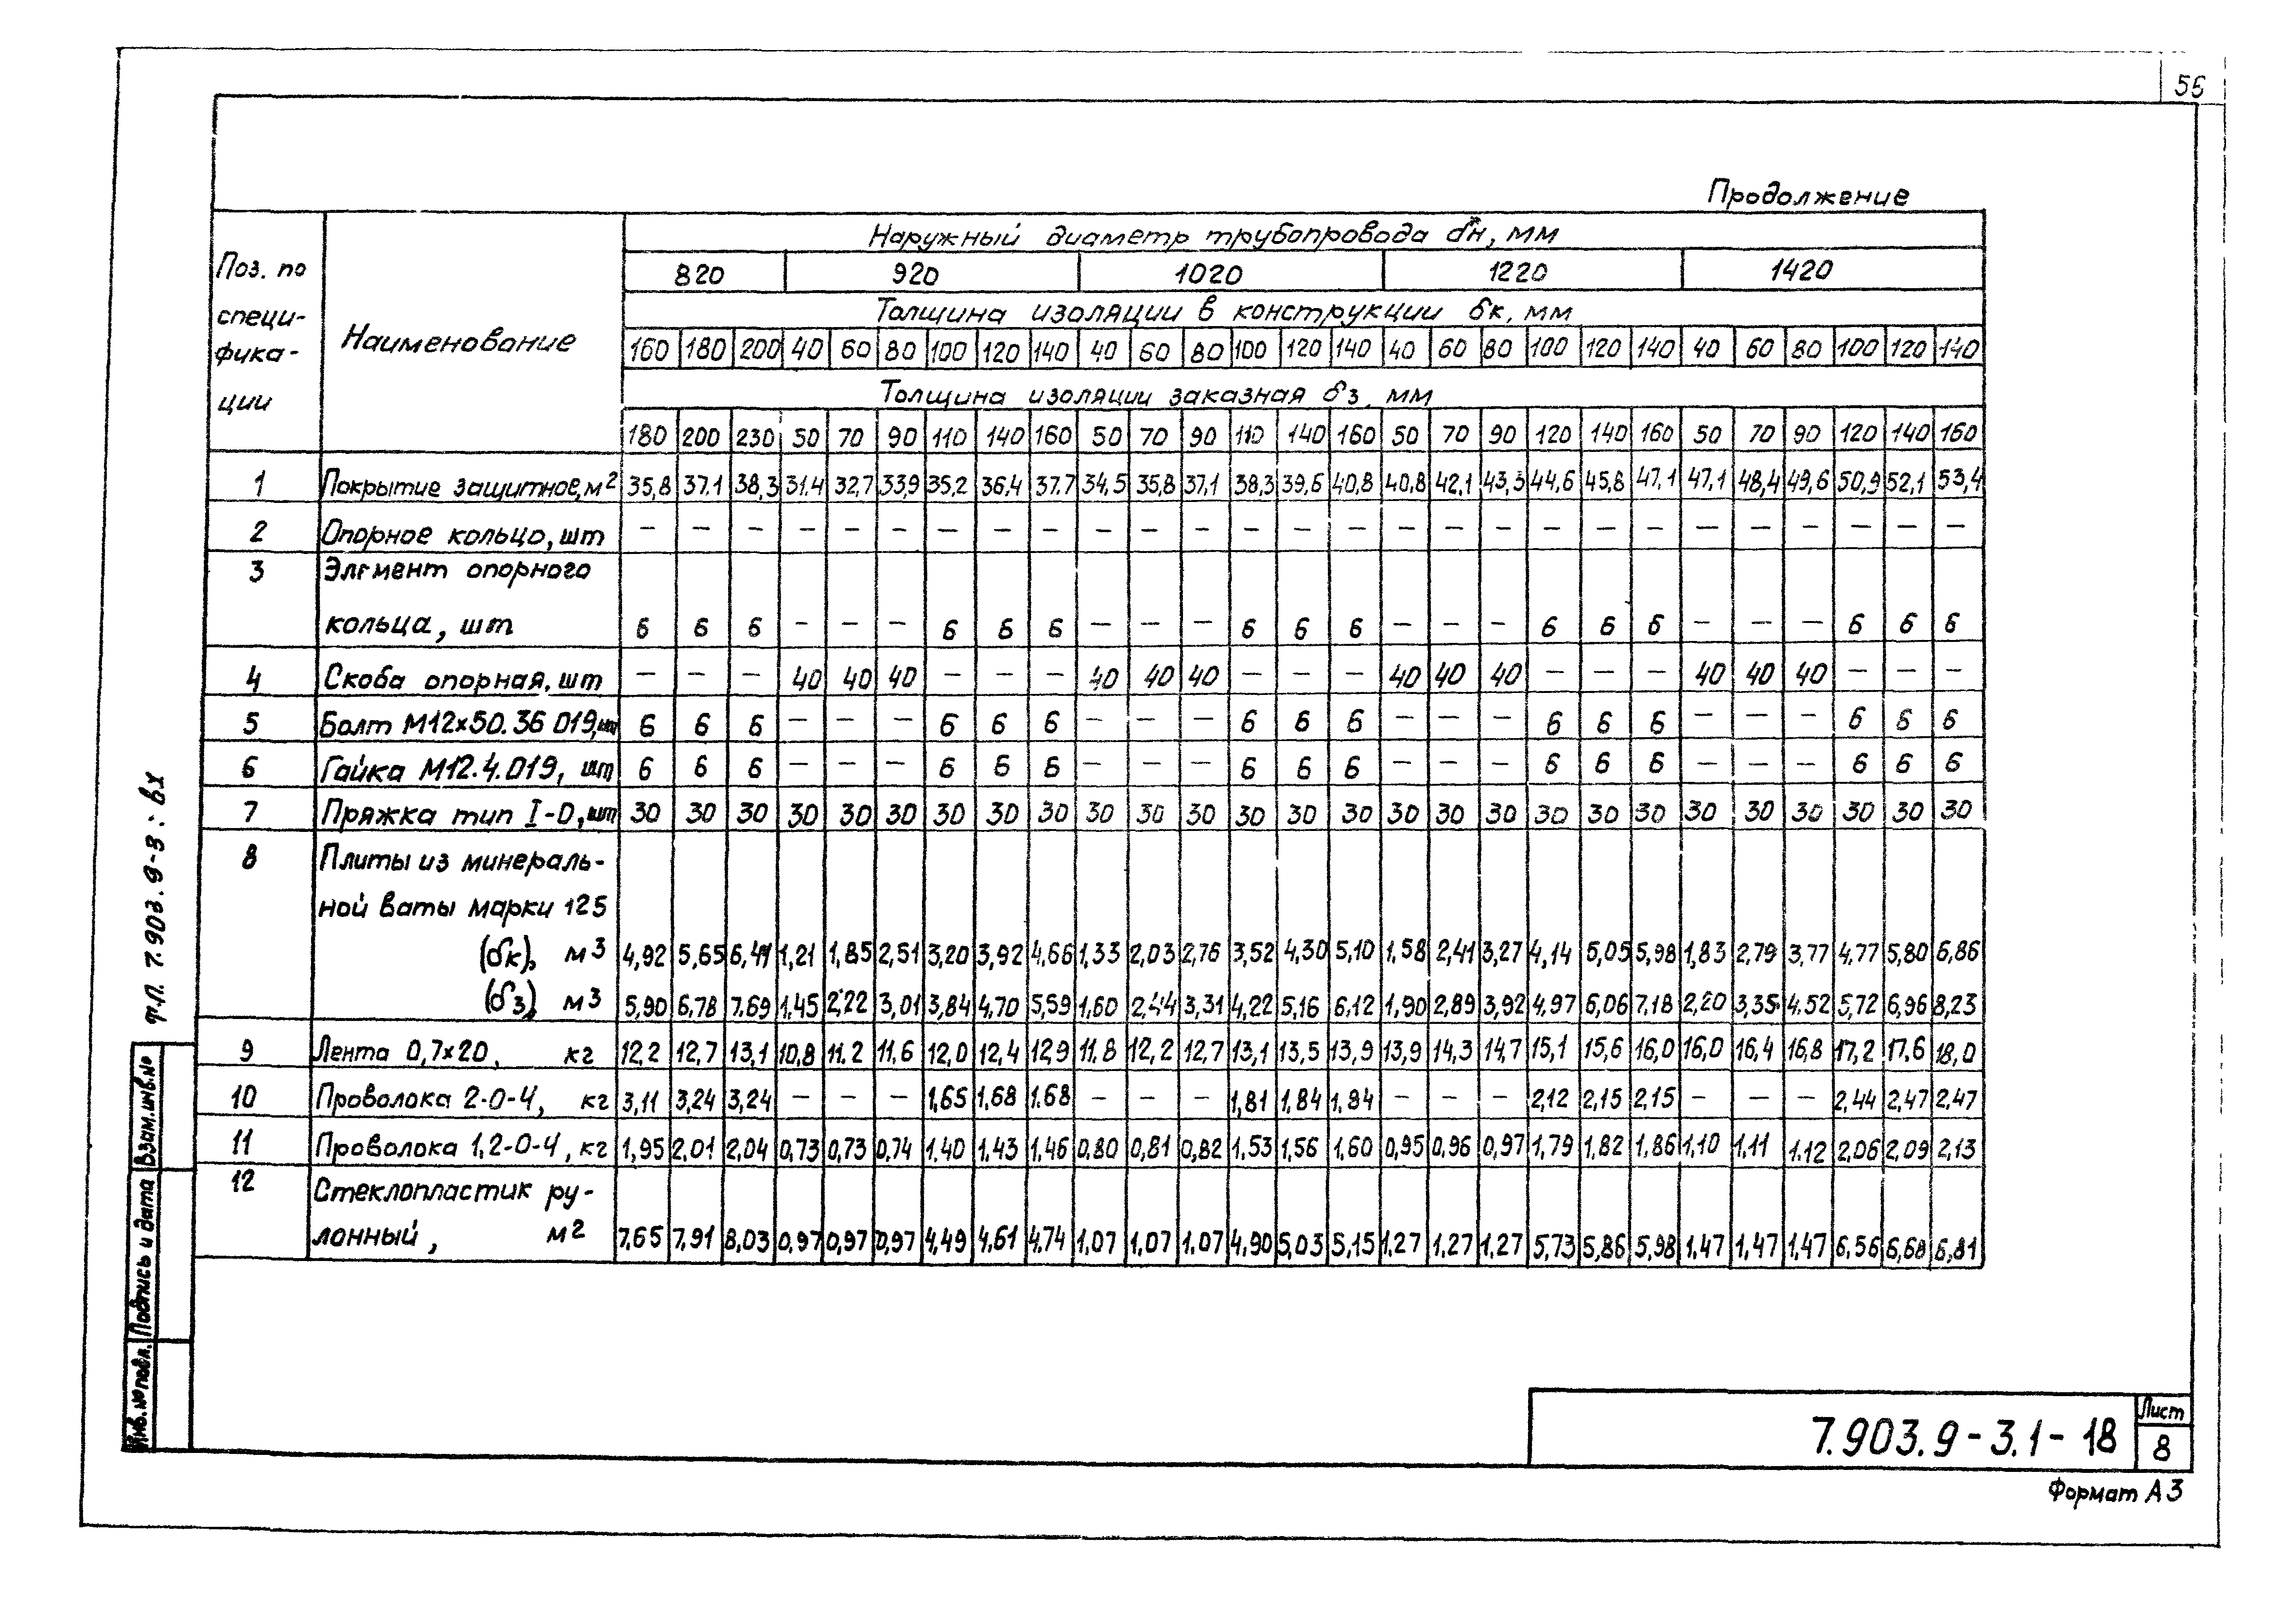 56
Продолжение
Поз. по специфика-ции
Наименование
Наружный диаметр трубопровода dн, мм
820 920 1020 1220 1420
Толщина изоляции в конструкции δк, мм
160 180 200 40 60 80 100 120 140 40 60 80 100 120 140 40 60 80 100 120 140 40 60 80 100 120 140
Толщина изоляции заказная δз, мм
180 200 230 50 70 90 110 140 160 50 70 90 110 140 160 50 70 90 120 140 160 50 70 90 120 140 160
1 Покрытие защитное, м2 35,8 37.1 38,3 31.4 32,7 33,9 35,2 36,4 37.7 34,5 35,8 37,1 38,3 39,6 40,8 40,8 42,1 43,3 44,6 45,8 47,1 47,1 48,4 49,6 50,9 52,1 53,4
2 Опорное кольцо, шт — — — — — — — — — — — — — — — — — — — — — — — — — — —
3 Элемент опорного
кольца, шт 6 6 6 — — — 6 6 6 — — — 6 6 6 — — — 6 6 6 — — — 6 6 6
4 Скоба опорная, шт — — — 40 40 40 — — — 40 40 40 — — — 40 40 40 — — — 40 40 40 — — —
5 Болт М12х50.36 019, шт 6 6 6 — — — 6 6 6 — — — 6 6 6 — — — 6 6 6 — — — 6 6 6
6 Гайка М12.4.019, шт 6 6 6 — — — 6 6 6 — — — 6 6 6 — — — 6 6 6 — — — 6 6 6
7 Пряжка тип I-О, шт 30 30 30 30 30 30 30 30 30 30 30 30 30 30 30 30 30 30 30 30 30 30 30 30 30 30 30
8 Плиты из минераль-
ной ваты марки 125
(δк), м3 4,92 5,65 6,41 1,21 1,85 2,51 3,20 3,92 4,66 1,33 2,03 2,76 3,52 4,30 5,10 1,58 2,41 3,27 4,14 5,05 5,98 1,83 2,79 3,77 4,77 5,80 6,86
(δз) м3 5,90 6,78 7,69 1.45 2,22 3,01 3,84 4,70 5,59 1,60 2,44 3,31 4,22 5,16 6,12 1,90 2,89 3,92 4,97 6,06 7,18 2,20 3,35 4.52 5,72 6,96 8,23
9 Лента 0,7х20, кг 12,2 12,7 13,1 10,8 11.2 11,6 12,0 12,4 12,9 11.8 12,2 12,7 13,1 13,5 13,9 13,9 14,3 14,7 15,1 15,6 16,0 16,0 16,4 16,8 17,2 17.6 18,0
10 Проволока 2-О-Ч, кг 3,11 3,24 3,24 — — — 1,65 1,68 1.68 — — — 1,81 1,84 1,84 — — — 2,12 2,15 2,15 — — — 2,44 2,47 2,47
11 Проволока 1,2-О-Ч, кг 1,95 2,01 2,04 0,73 0,73 0,74 1.40 1.43 1.46 0,80 0,81 0,82 1,53 1,56 1,60 0,95 0,96 0,97 1,79 1,82 1,86 1,10 1,11 1.12 2,06 2,09 2,13
12 Стеклопластик ру-
лонный, м2 7,65 7,91 8,03 0,97 0,97 0,97 4,49 4,61 4,74 1,07 1,07 1,07 4,90 5,03 5,15 1,27 1,27 1,27 5,73 5,86 5,98 1,47 1,47 1,47 6,56 6,68 6,81
т.п. 7.903.9-3: в.1
Инв. № подл. Подпись и дата Взам. инв. №
7.903.9-3.1-18
Лист
8
Формат А3